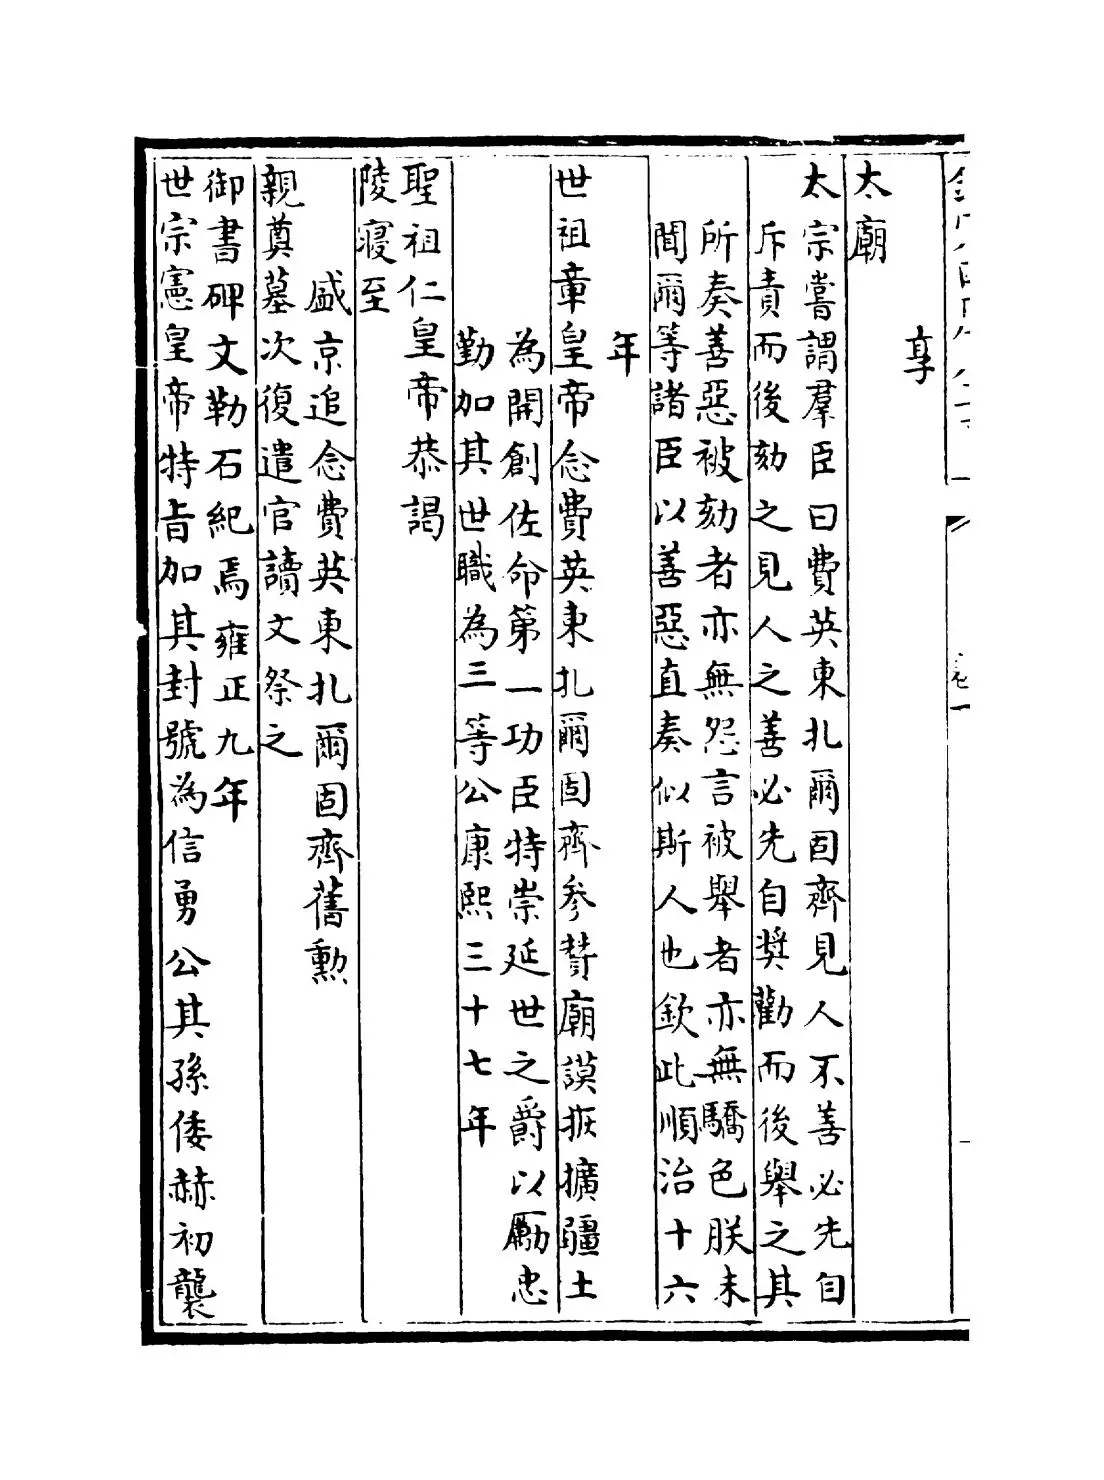 享
太廟
太宗嘗謂羣臣曰費英東扎爾固齊見人不善必先自
斥責而後劾之見人之善必先自奬勸而後舉之其
所奏善惡被劾者亦無怨言被舉者亦無驕色朕未
聞爾等諸臣以善惡直奏似斯人也欽此順治十六
年
世祖章皇帝念費英東扎爾固齊參贊廟謨恢擴疆土
為開創佐命第一功臣特崇延世之爵以勵忠
勤加其世職為三等公康熙三十七年
聖祖仁皇帝恭謁
陵寢至
盛京追念費英東扎爾固齊舊勲
親奠墓次復遣官讀文祭之
御書碑文勒石紀焉雍正九年
世宗憲皇帝特旨加其封號為信勇公其孫倭赫初襲